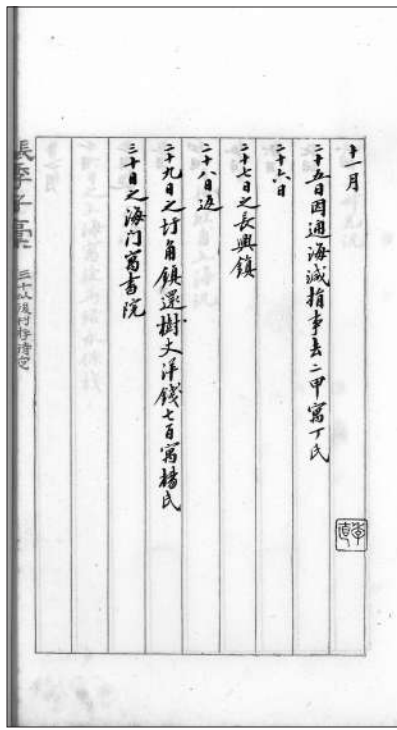 十一月
二十五日因通海減捐事去二甲寓丁氏
二十六日
二十七日之長興鎮
二十八日返
二十九日之圩角鎮還樹丈洋錢七百寓楊氏
三十日之海门寓書院
張季子稾
季直